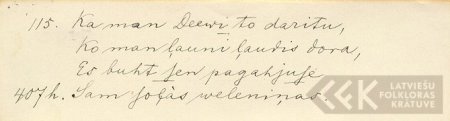 115. Ka man Deewi to daritu,
Ko man ļauni ļaudis dora,
Es buht sen pagahjuse
407h. Sam soļàs weleniņas.
LATVIEŠU
FOLKLORAS
KRĀTUVE